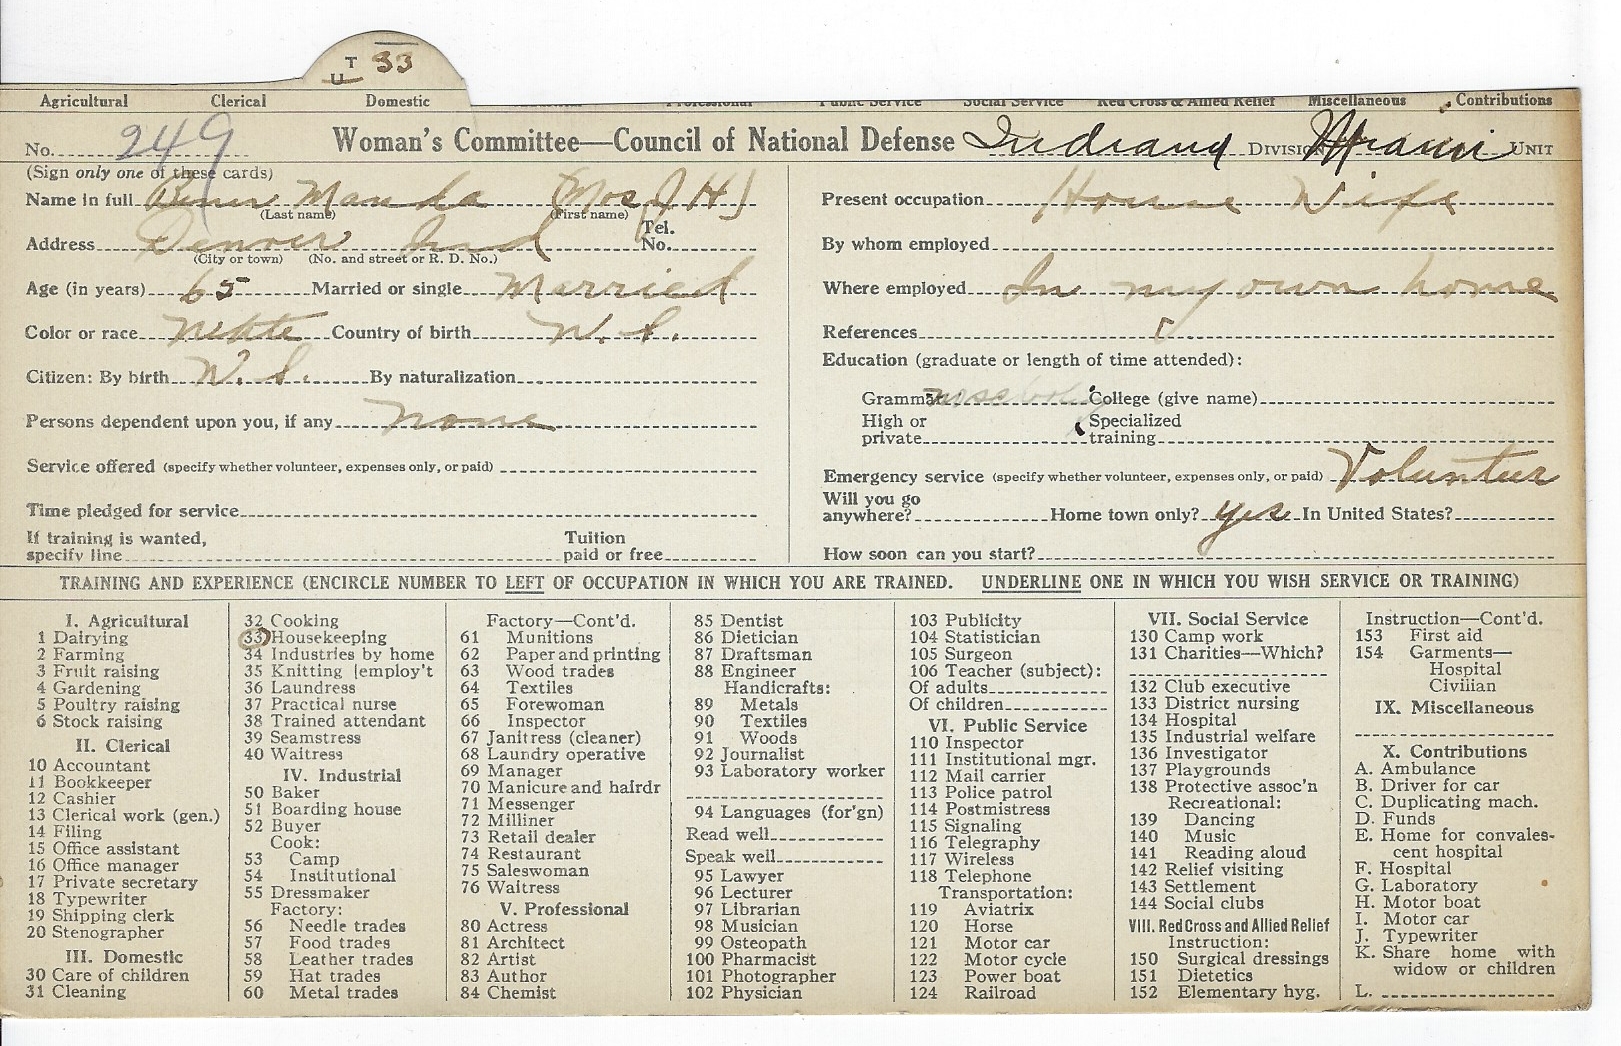 U T 33
Agricultural Clerical Domestic Professional Public Service Social Service Red Cross & Allied Relief Miscellaneous Contributions
No. 249 Woman's Committee—Council of National Defense Indiana Division Miami Unit
(Sign only one of these cards)
Name in full Manda (Mrs J H)
(Last name) (First name)
Address Denver Ind Tel. No.
(City or town) (No. and street or R. D. No.)
Age (in years) 65 Married or single Married
Color or race White Country of birth U. S.
Citizen: By birth U. S. By naturalization
Persons dependent upon you, if any none
Service offered (specify whether volunteer, expenses only, or paid)
Time pledged for service
If training is wanted, specify line Tuition paid or free
Present occupation House Wife
By whom employed
Where employed In my own home
References
Education (graduate or length of time attended):
Grammar College (give name)
High or private Specialized training
Emergency service (specify whether volunteer, expenses only, or paid) Volunteer
Will you go anywhere? Home town only? yes In United States?
How soon can you start?
TRAINING AND EXPERIENCE (ENCIRCLE NUMBER TO LEFT OF OCCUPATION IN WHICH YOU ARE TRAINED. UNDERLINE ONE IN WHICH YOU WISH SERVICE OR TRAINING)
I. Agricultural
1 Dairying
2 Farming
3 Fruit raising
4 Gardening
5 Poultry raising
6 Stock raising
II. Clerical
10 Accountant
11 Bookkeeper
12 Cashier
13 Clerical work (gen.)
14 Filing
15 Office assistant
16 Office manager
17 Private secretary
18 Typewriter
19 Shipping clerk
20 Stenographer
III. Domestic
30 Care of children
31 Cleaning
32 Cooking
33 Housekeeping
34 Industries by home
35 Knitting [employ't
36 Laundress
37 Practical nurse
38 Trained attendant
39 Seamstress
40 Waitress
IV. Industrial
50 Baker
51 Boarding house
52 Buyer
Cook:
53 Camp
54 Institutional
55 Dressmaker
Factory:
56 Needle trades
57 Food trades
58 Leather trades
59 Hat trades
60 Metal trades
Factory—Cont'd.
61 Munitions
62 Paper and printing
63 Wood trades
64 Textiles
65 Forewoman
66 Inspector
67 Janitress (cleaner)
68 Laundry operative
69 Manager
70 Manicure and hairdr
71 Messenger
72 Milliner
73 Retail dealer
74 Restaurant
75 Saleswoman
76 Waitress
V. Professional
80 Actress
81 Architect
82 Artist
83 Author
84 Chemist
85 Dentist
86 Dietician
87 Draftsman
88 Engineer
Handicrafts:
89 Metals
90 Textiles
91 Woods
92 Journalist
93 Laboratory worker
94 Languages (for'gn)
Read well
Speak well
95 Lawyer
96 Lecturer
97 Librarian
98 Musician
99 Osteopath
100 Pharmacist
101 Photographer
102 Physician
103 Publicity
104 Statistician
105 Surgeon
106 Teacher (subject):
Of adults
Of children
VI. Public Service
110 Inspector
111 Institutional mgr.
112 Mail carrier
113 Police patrol
114 Postmistress
115 Signaling
116 Telegraphy
117 Wireless
118 Telephone
Transportation:
119 Aviatrix
120 Horse
121 Motor car
122 Motor cycle
123 Power boat
124 Railroad
VII. Social Service
130 Camp work
131 Charities—Which?
132 Club executive
133 District nursing
134 Hospital
135 Industrial welfare
136 Investigator
137 Playgrounds
138 Protective assoc'n
Recreational:
139 Dancing
140 Music
141 Reading aloud
142 Relief visiting
143 Settlement
144 Social clubs
VIII. Red Cross and Allied Relief
Instruction:
150 Surgical dressings
151 Dietetics
152 Elementary hyg.
Instruction—Cont'd.
153 First aid
154 Garments—
Hospital
Civilian
IX. Miscellaneous
X. Contributions
A. Ambulance
B. Driver for car
C. Duplicating mach.
D. Funds
E. Home for convales-
cent hospital
F. Hospital
G. Laboratory
H. Motor boat
I. Motor car
J. Typewriter
K. Share home with
widow or children
L.